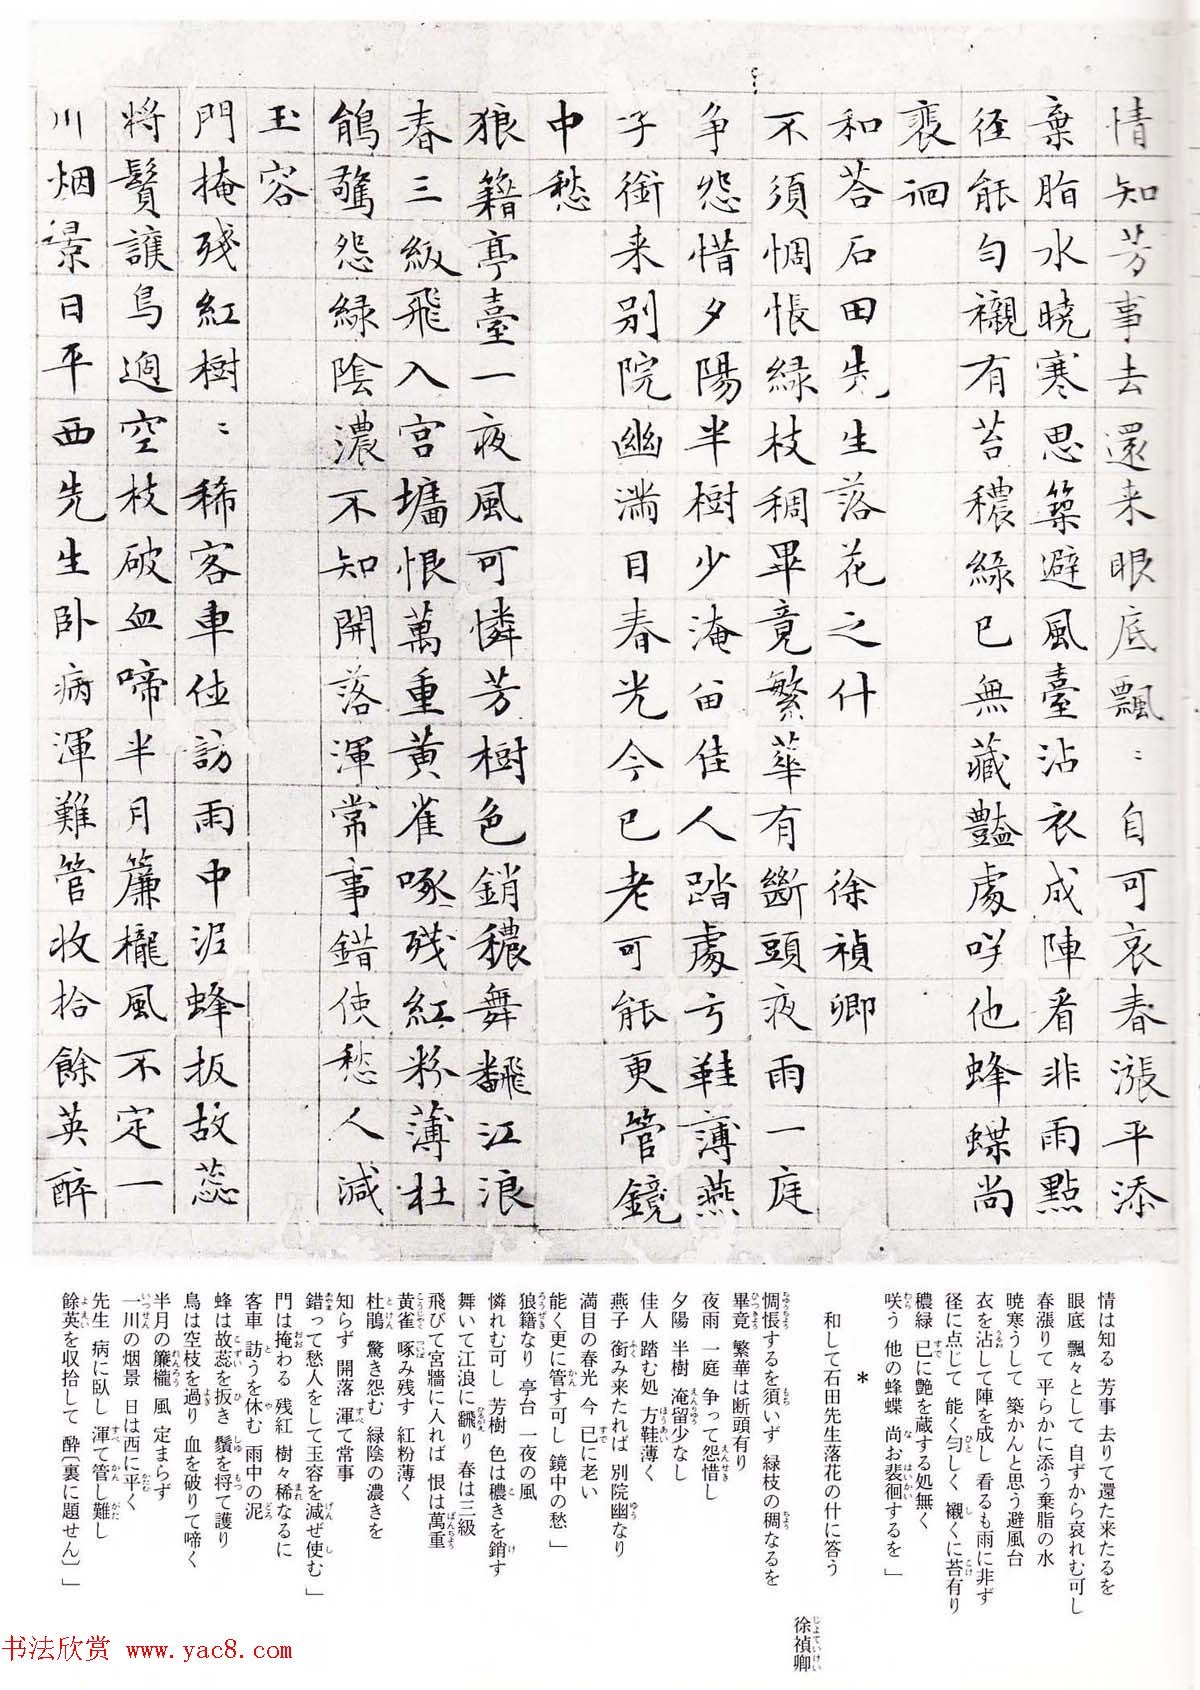 情知芳事去還来眼底飄〻自可哀春漲平添
棄脂水曉寒思築避風臺沾衣成陣看非雨點
径能勻襯有苔穠綠已無藏豔處咲他蜂蝶尚
裵徊
和荅石田先生落花之什 徐禎卿
不須惆悵綠枝稠畢竟繁華有斷頭夜雨一庭
争怨惜夕陽半樹少淹留佳人踏處方鞋薄燕
子銜来别院幽滿目春光今已老可能更管鏡
中愁
狼籍亭臺一夜風可憐芳樹色銷穠舞飜江浪
春三級飛入宮墻恨萬重黄雀啄殘紅粉薄杜
鵑驚怨綠陰濃不知開落渾常事錯使愁人減
玉容
門掩殘紅樹〻稀客車休訪雨中泥蜂扳故蕊
將鬚護鳥過空枝破血啼半月簾櫳風不定一
川烟景日平西先生卧病渾難管收拾餘英醉
情は知る 芳事 去りて還た来たるを
眼底 飄々として 自ずから哀れむ可し
春漲りて 平らかに添う棄脂の水
暁寒うして 築かんと思う避風台
衣を沾して陣を成し 看るも雨に非ず
径に点じて 能く勻しく 襯くに苔有り
穠緑 已に艶を蔵する処無く
咲う 他の蜂蝶 尚お裴徊するを」
*
和して石田先生落花の什に答う
徐禎卿
惆悵するを須いず 緑枝の稠なるを
畢竟 繁華は断頭有り
夜雨 一庭 争って怨惜し
夕陽 半樹 淹留少なし
佳人 踏む処 方鞋薄く
燕子 銜み来たれば 別院幽なり
満目の春光 今 已に老い
能く更に管す可し 鏡中の愁」
狼籍なり 亭台 一夜の風
憐れむ可し 芳樹 色は穠きを銷す
舞いて江浪に飜り 春は三級
飛びて宮牆に入れば 恨は萬重
黄雀 啄み残す 紅粉薄く
杜鵑 驚き怨む 緑陰の濃きを
知らず 開落 渾て常事
錯って愁人をして玉容を減ぜ使む」
門は掩わる 残紅 樹々稀なるに
客車 訪うを休む 雨中の泥
蜂は故蕊を扳き 鬚を将て護り
鳥は空枝を過り 血を破りて啼く
半月の簾櫳 風 定まらず
一川の烟景 日は西に平く
先生 病に臥し 渾て管し難し
餘英を収拾して 酔〔裏に題せん〕」
书法欣赏 www.yac8.com